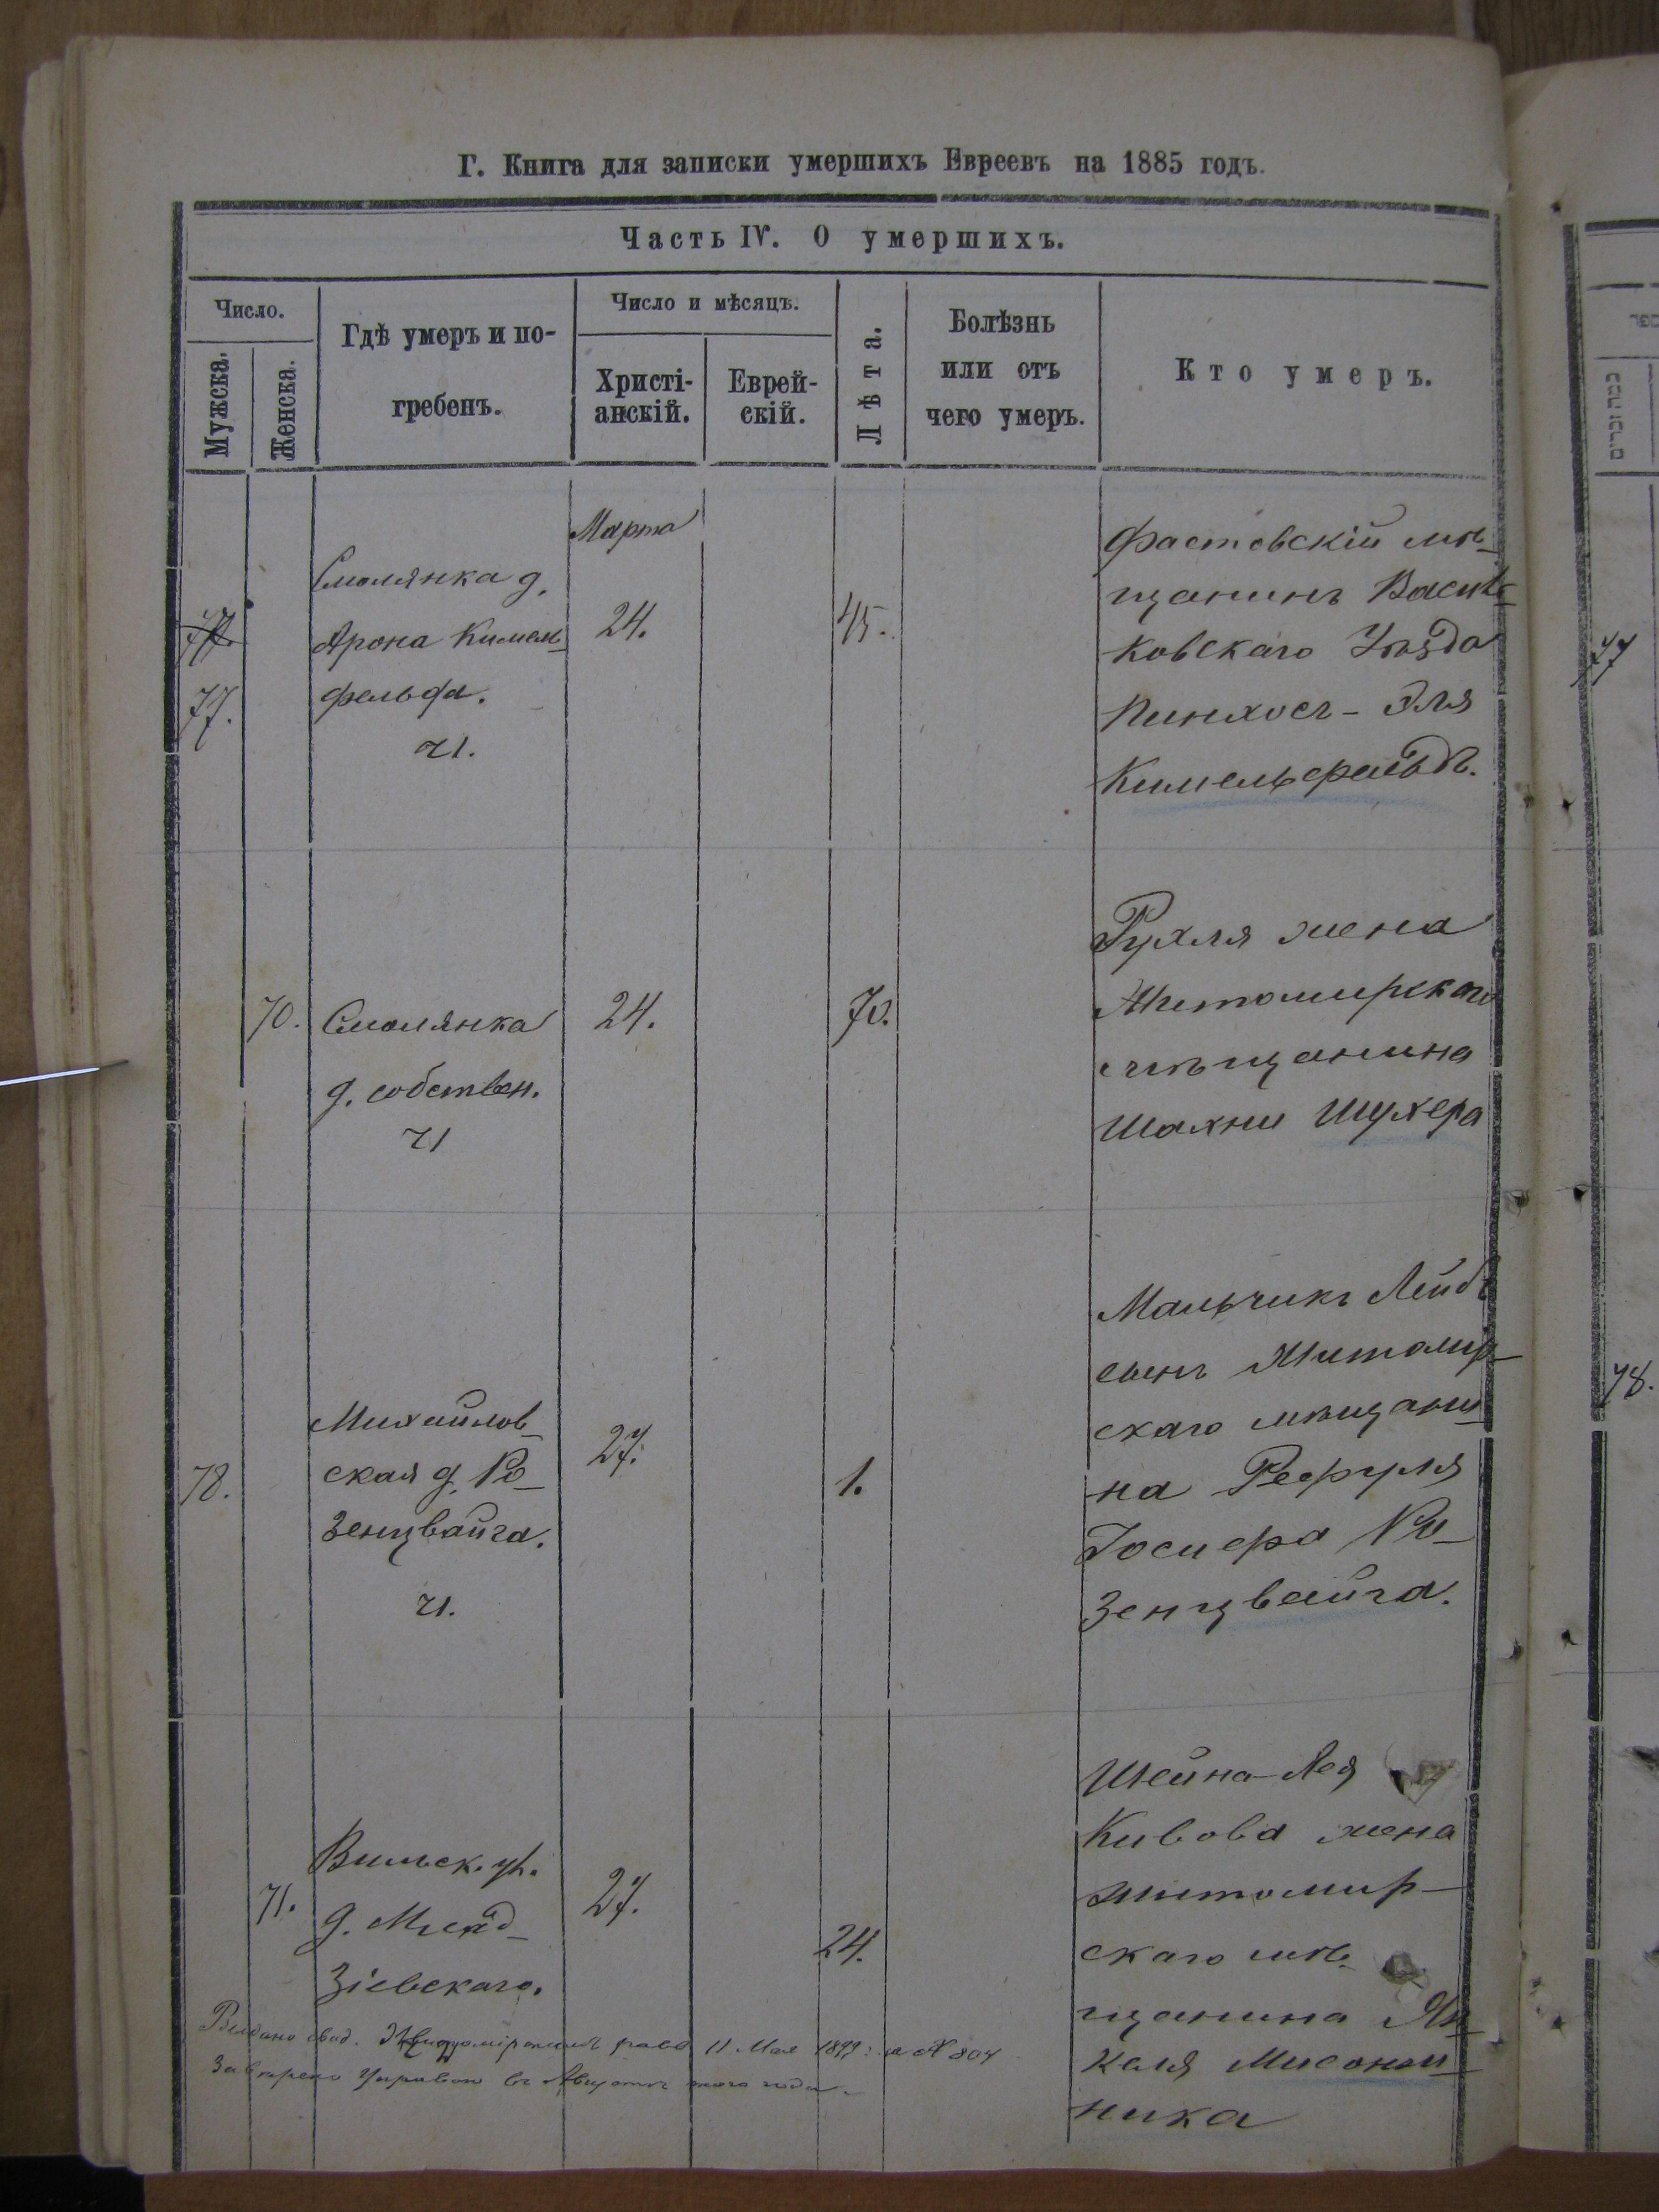 Г. Книга для записки умершихъ Евреевъ на 1885 годъ.
Часть IV. О умершихъ.
Число.
Мужска.
Женска.
Гдѣ умеръ и по-
гребенъ.
Число и мѣсяцъ.
Христі-
анскій.
Еврей-
скій.
Лѣта.
Болѣзнь
или отъ
чего умеръ.
Кто умеръ.
77.
Смолянка д.
Арона Кимель-
фельда.
Ч.
Марта
24.
45.
Фастовскій мѣ-
щанинъ Василь-
ковскаго Уѣзда
Пинхосъ-Эля
Кимельфельдъ.
70.
Смолянка
д. собствен.
Ч
24.
70.
Рухля жена
Житомирскаго
мѣщанина
Шахни Шухера
78.
Михайлов-
ская д. Ро-
зенцвайга.
Ч.
27.
1.
Мальчикъ Лейбъ
сынъ Житомир-
скаго мѣщани-
на Рефуля
Іосифа Ро-
зенцвайга.
71.
Вильск. ул.
д.
зіевскаго.
27.
24.
Шейна-Лея
Кивова жена
житомир-
скаго мѣ-
щанина Ян-
келя
ника
Выдано 11 Мая № 804
Управою въ Августѣ того года.
77
78.